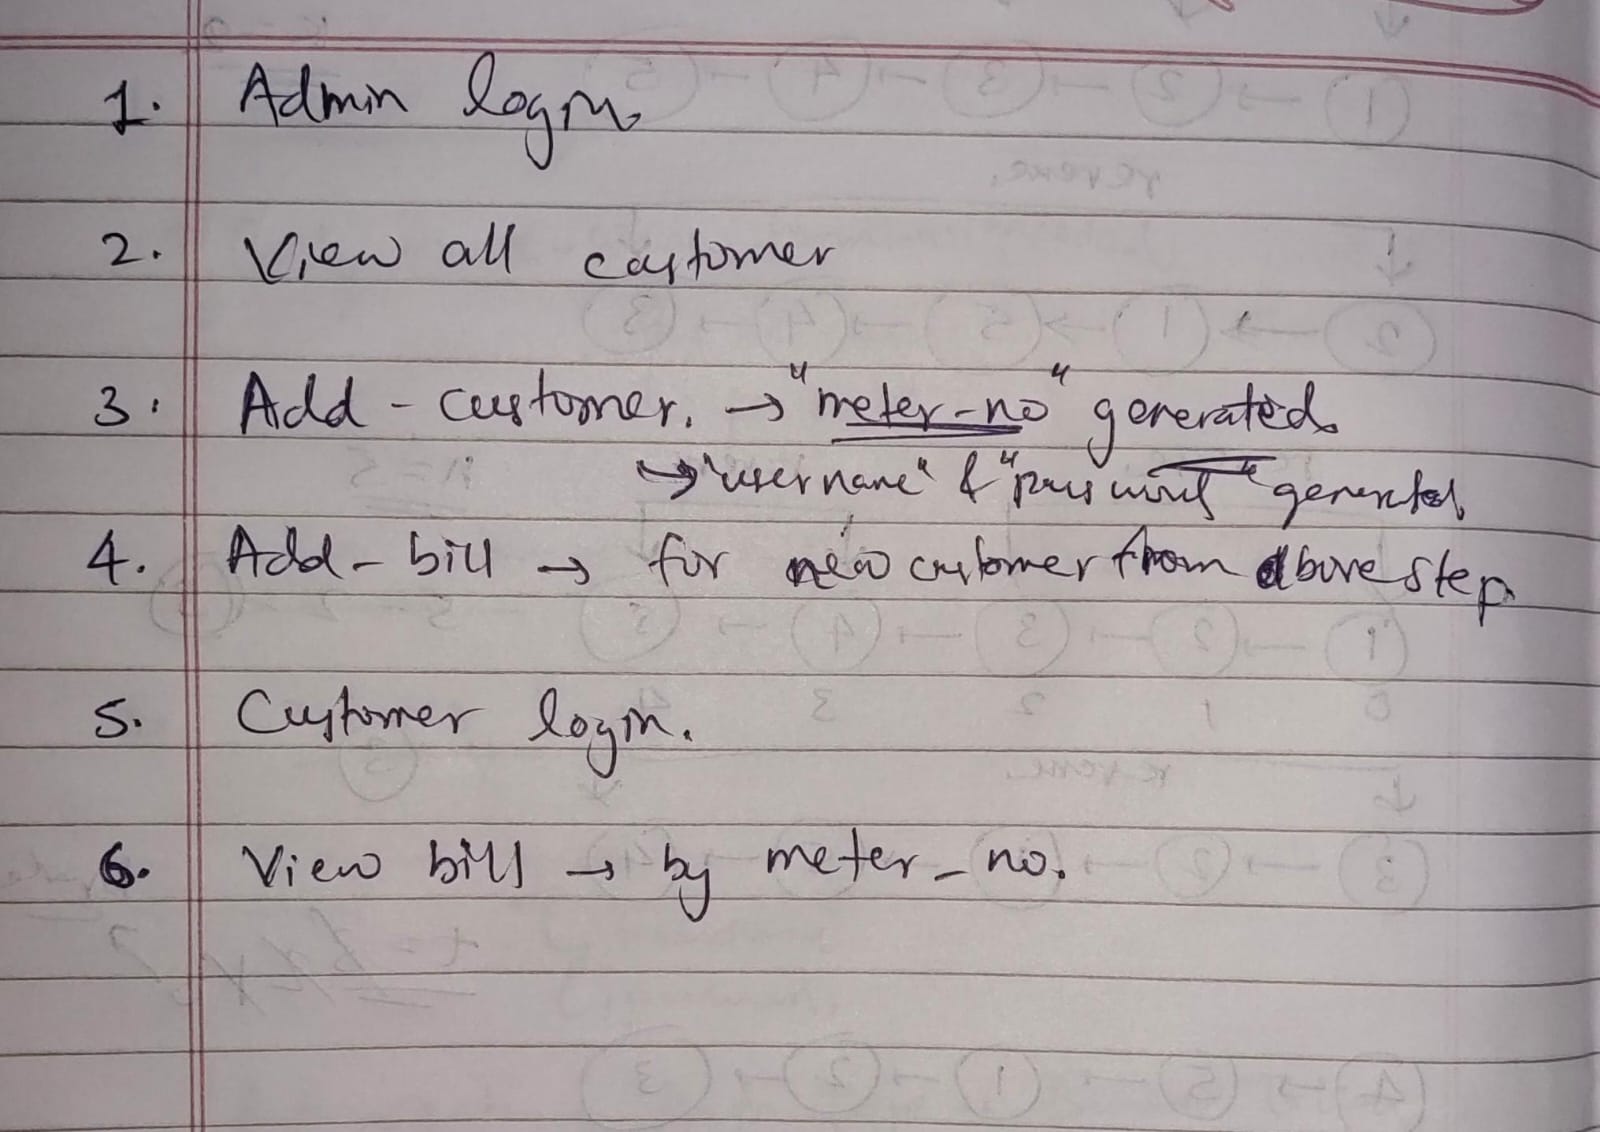 1. Admin login.
2. View all customer
3. Add - customer. → "meter-no" generated.
→ "username" & "password" generated
4. Add - bill → for new customer from above step.
5. Customer login.
6. View bill → by meter_no.